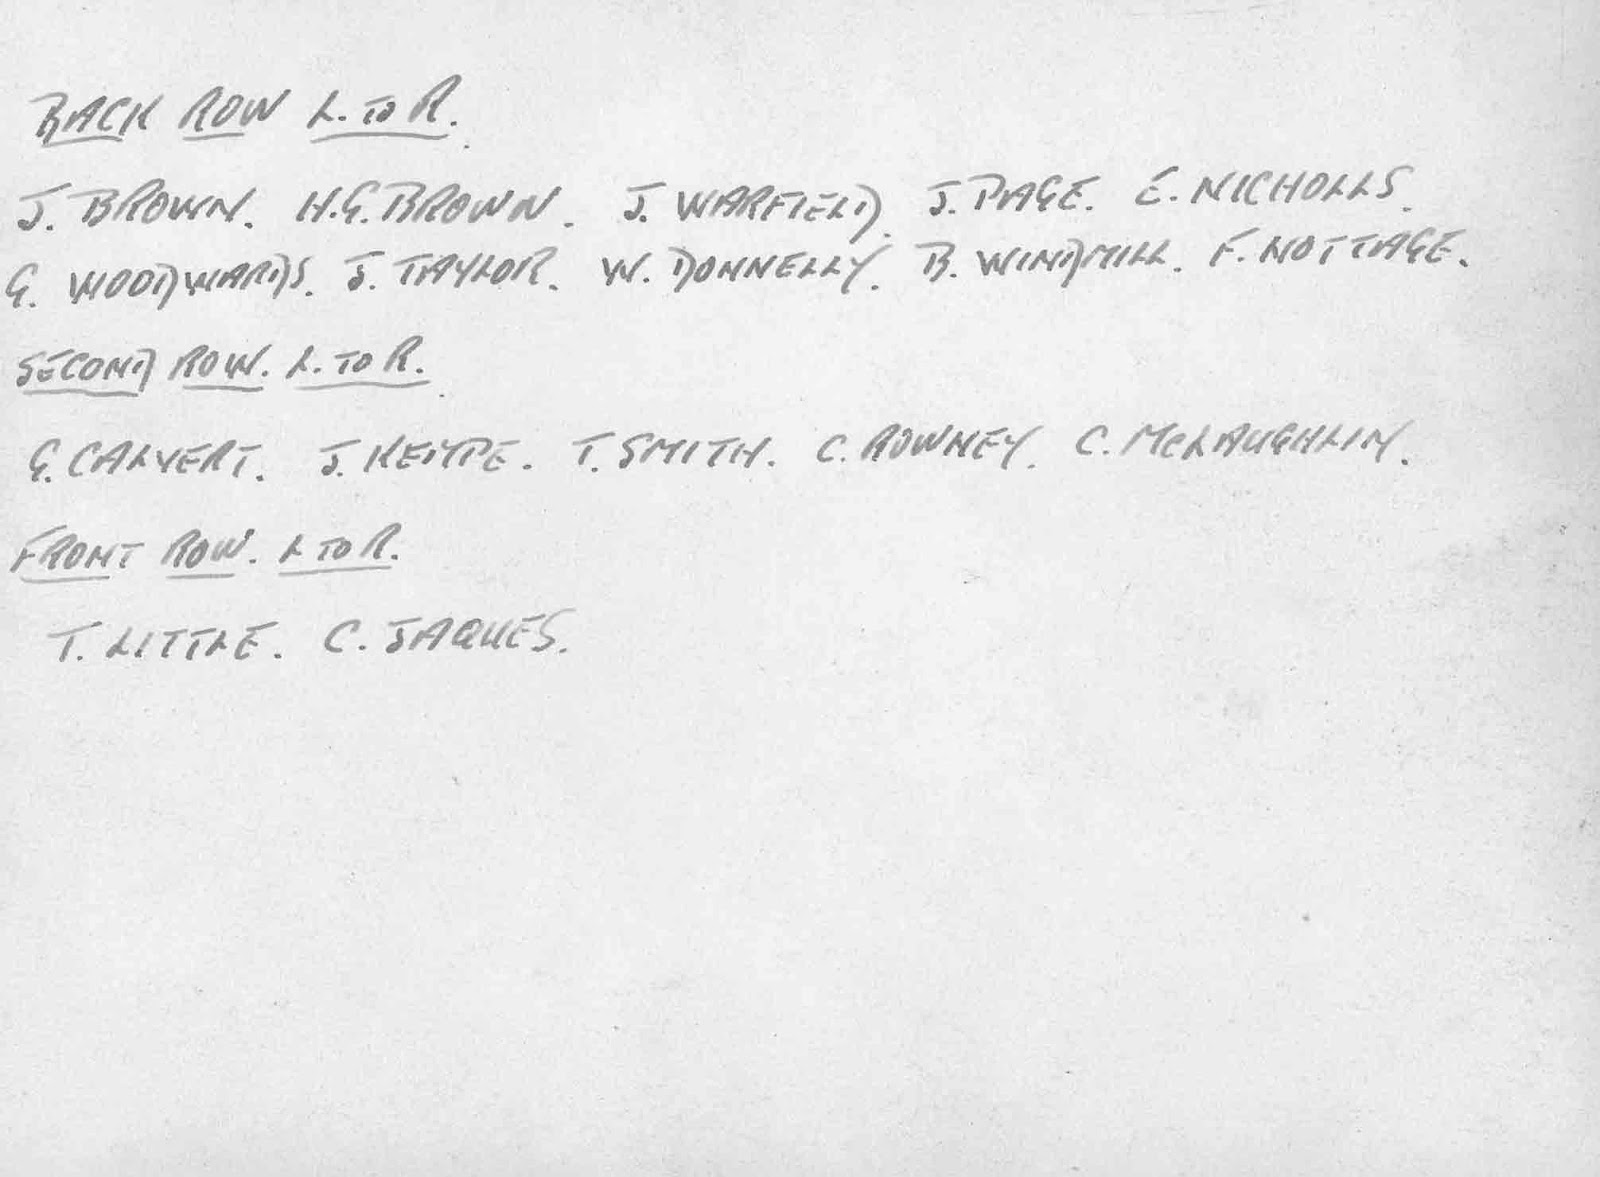 BACK ROW L. TO R.
J. BROWN. H.G. BROWN. J. WARFIELD. J. PAGE. E. NICHOLLS.
G. WOODWARDS. J. TAYLOR. W. DONNELLY. B. WINDMILL. F. NOTTAGE.
SECOND ROW. L. TO R.
G. CALVERT. J. KEMPE. T. SMITH. C. ROWNEY. C. McLAUGHLIN.
FRONT ROW. L TO R.
T. LITTLE. C. JAQUES.